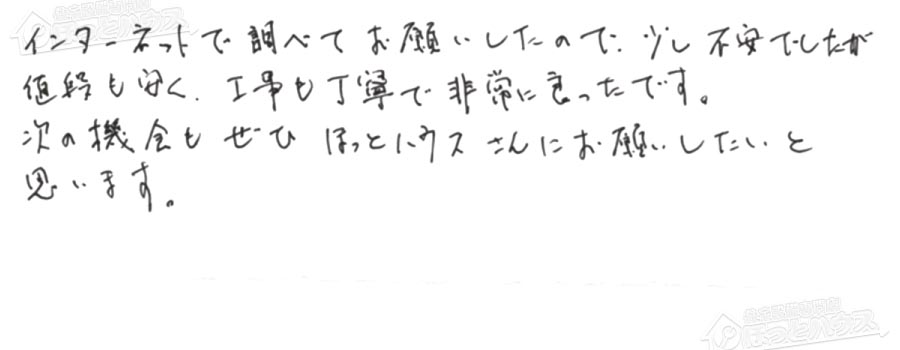 インターネットで調べてお願いしたので、少し不安でしたが
値段も安く、工事も丁寧で非常に良ったです。
次の機会もぜひ ほっとハウスさんにお願いしたいと
思います。
住宅設備専門店
ほっとハウス